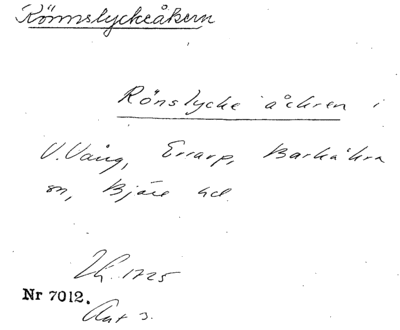 Rönnslyckeåkern
Rönslycke åckren i
V. Vång, Errarp, Barkåkra
sn, Bjäre hd.
Lh. 1725
Nr 7012.
Akt 3.